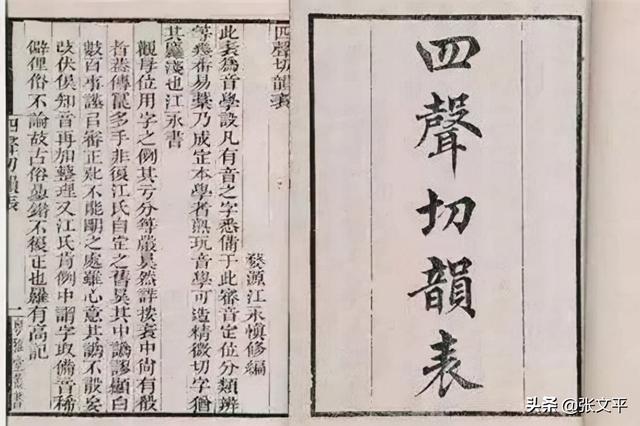 四聲切韻表
四聲切韻表
婺源江永慎修編
此表為音學設凡有音之字悉備于此審音定位分類辨
等幾番易藁乃成定本學者熟玩音學可造精微切字猶
其麤淺也江永書
觀母位用字之例其亏分等嚴矣然詳按表中尙有殽
者葢傳竁多手非復江氏自定之舊矣其中譌謬顯白
數百事謹已審正矣不能剛之處雖心意其譌不敢妄
改伏俟知音再加整理又江氏肯例中謂字取備音稀
僻俚俗不論故古俗錯不復正也羅有高記
四聲切韻表
一
粵雅堂叢書
头条 @张文平